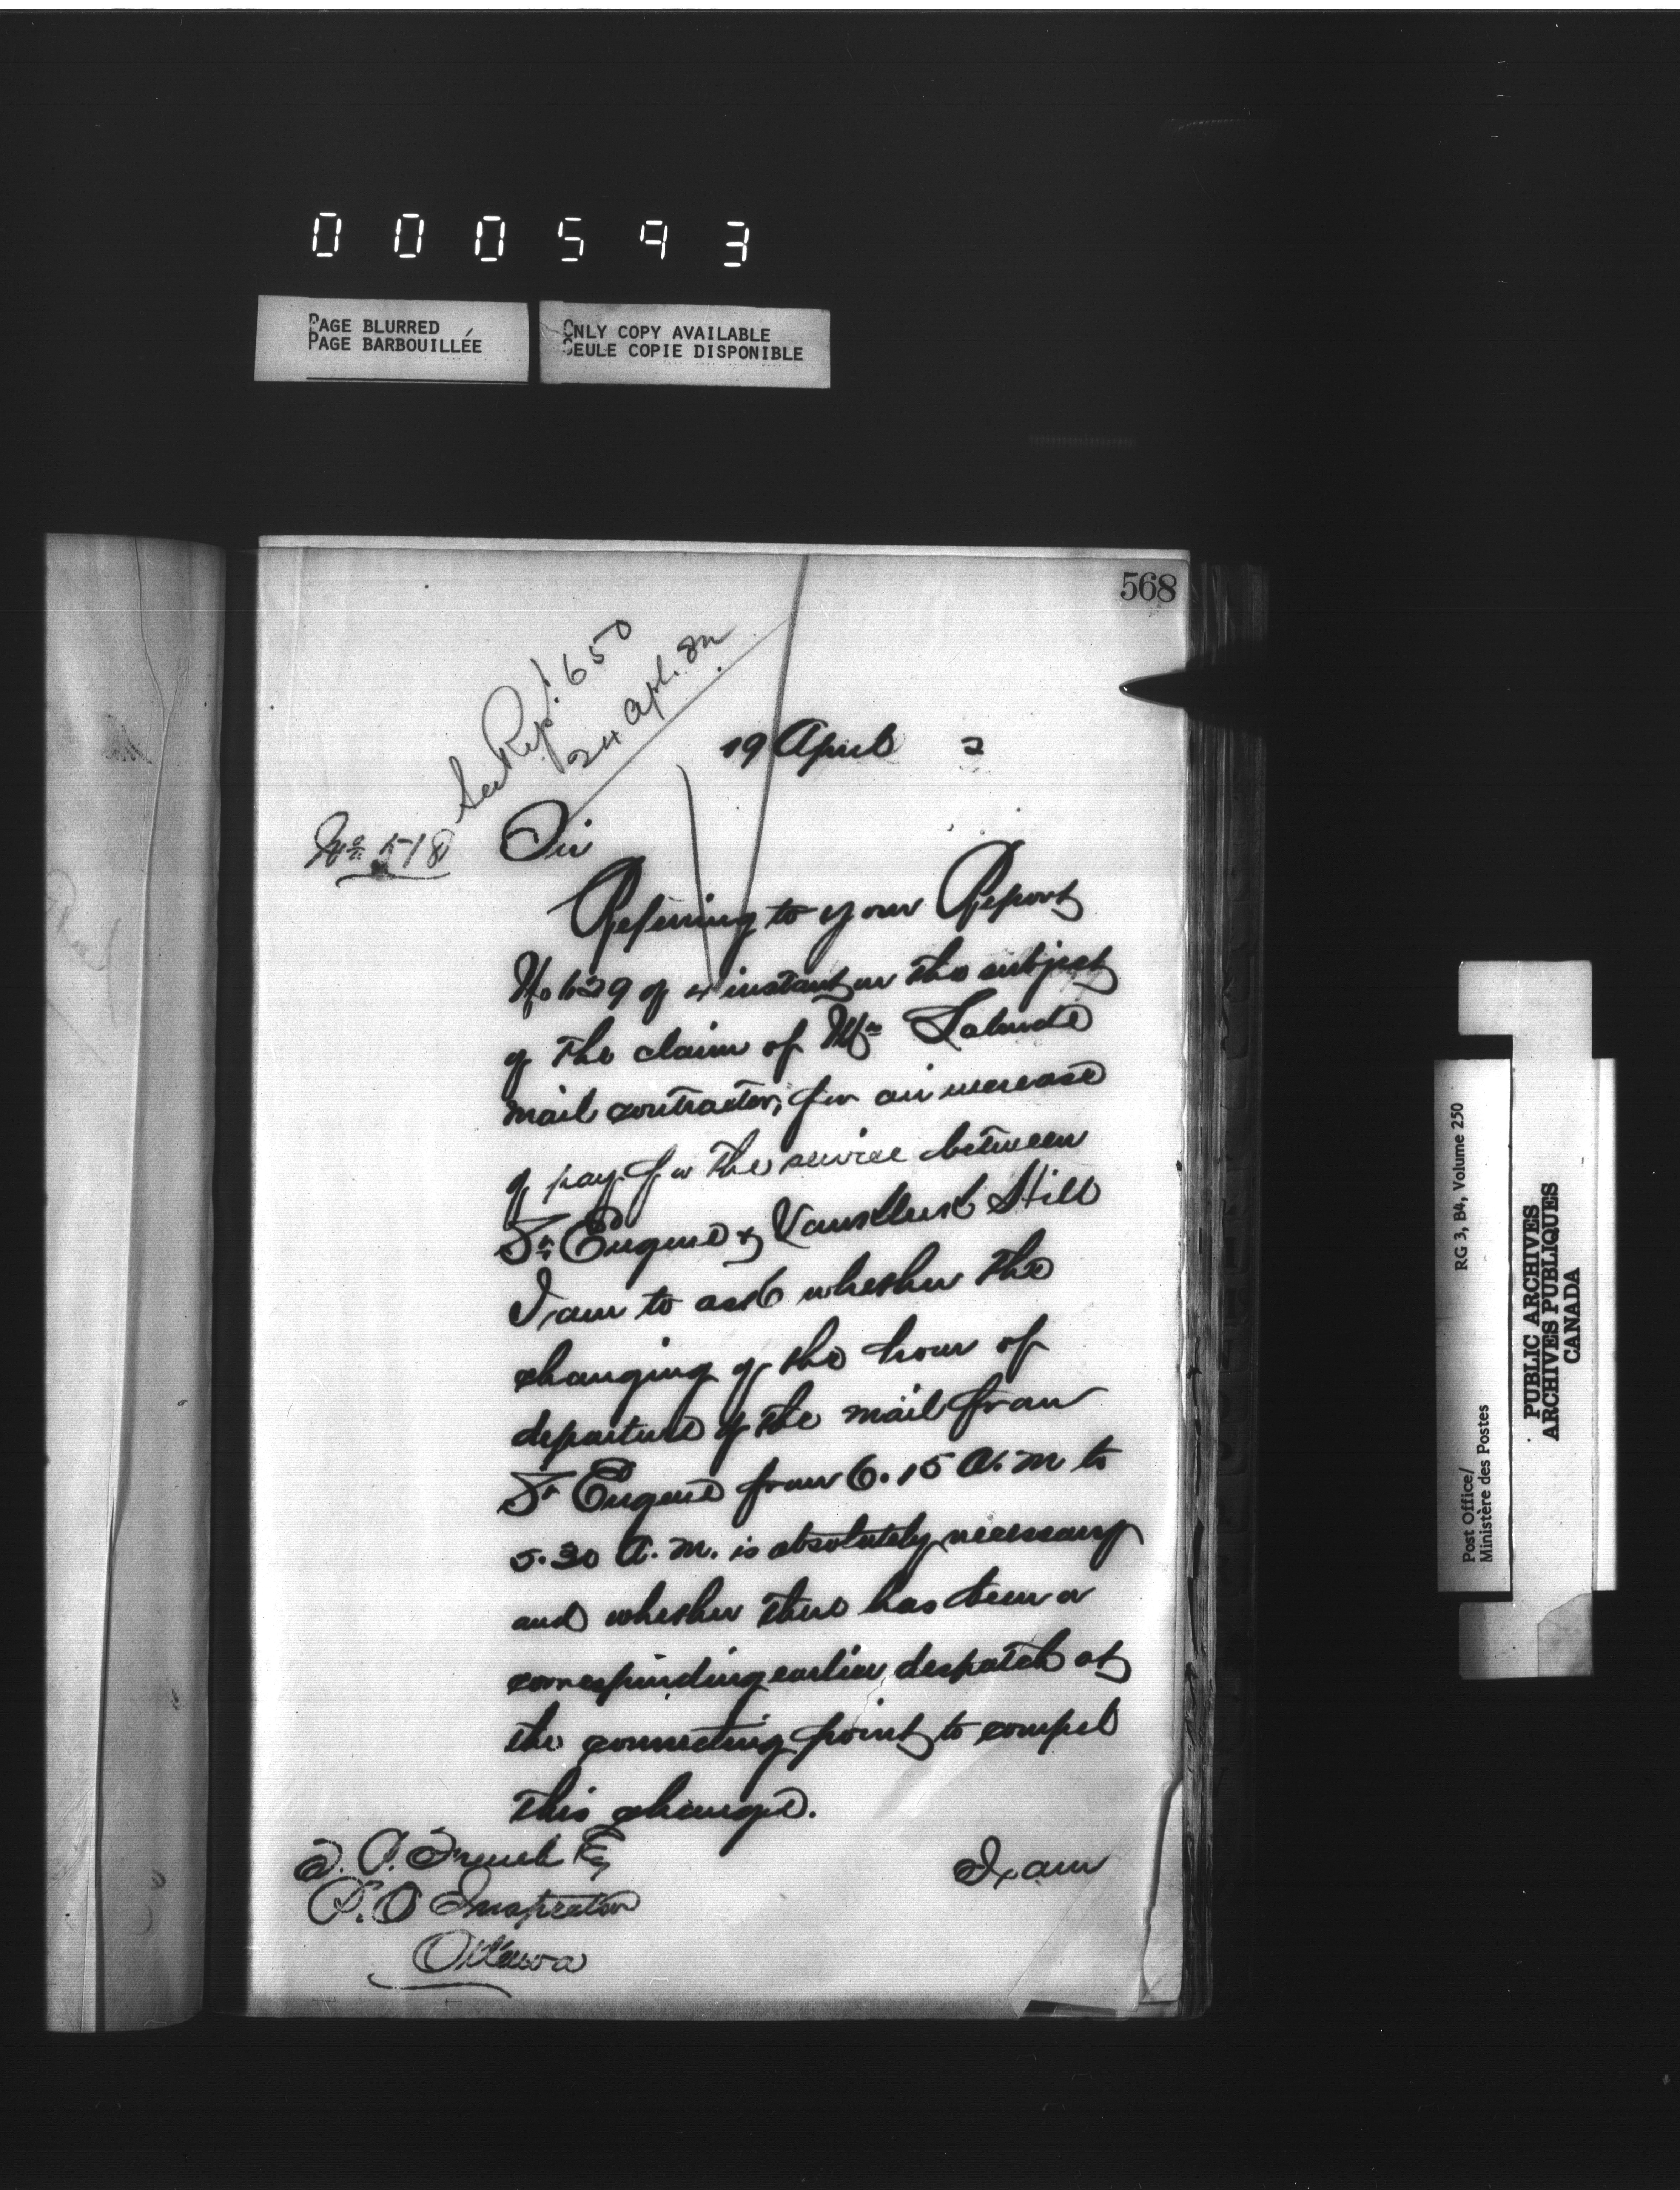 000593
PAGE BLURRED
PAGE BARBOUILLÉE
ONLY COPY AVAILABLE
SEULE COPIE DISPONIBLE
568
See Rept. 650
24 Apl. 82
19 April 2
No 518
Sir
Referring to your Report
No 629 of 4 instant on the subject
of the claim of Mr Lalonde
mail contractor, for an increase
of pay for the service between
St Eugene & Vankleek Hill
I am to ask whether the
changing of the hour of
departure of the mail from
St Eugene from 6.15 A.M to
5.30 A.M. is absolutely necessary
and whether there has been a
corresponding earlier despatch at
the connecting point to compel
this change.
I am
French Esq
P.O Inspector
Ottawa
Post Office/
Ministère des Postes
RG 3, B4, Volume 250
PUBLIC ARCHIVES
ARCHIVES PUBLIQUES
CANADA